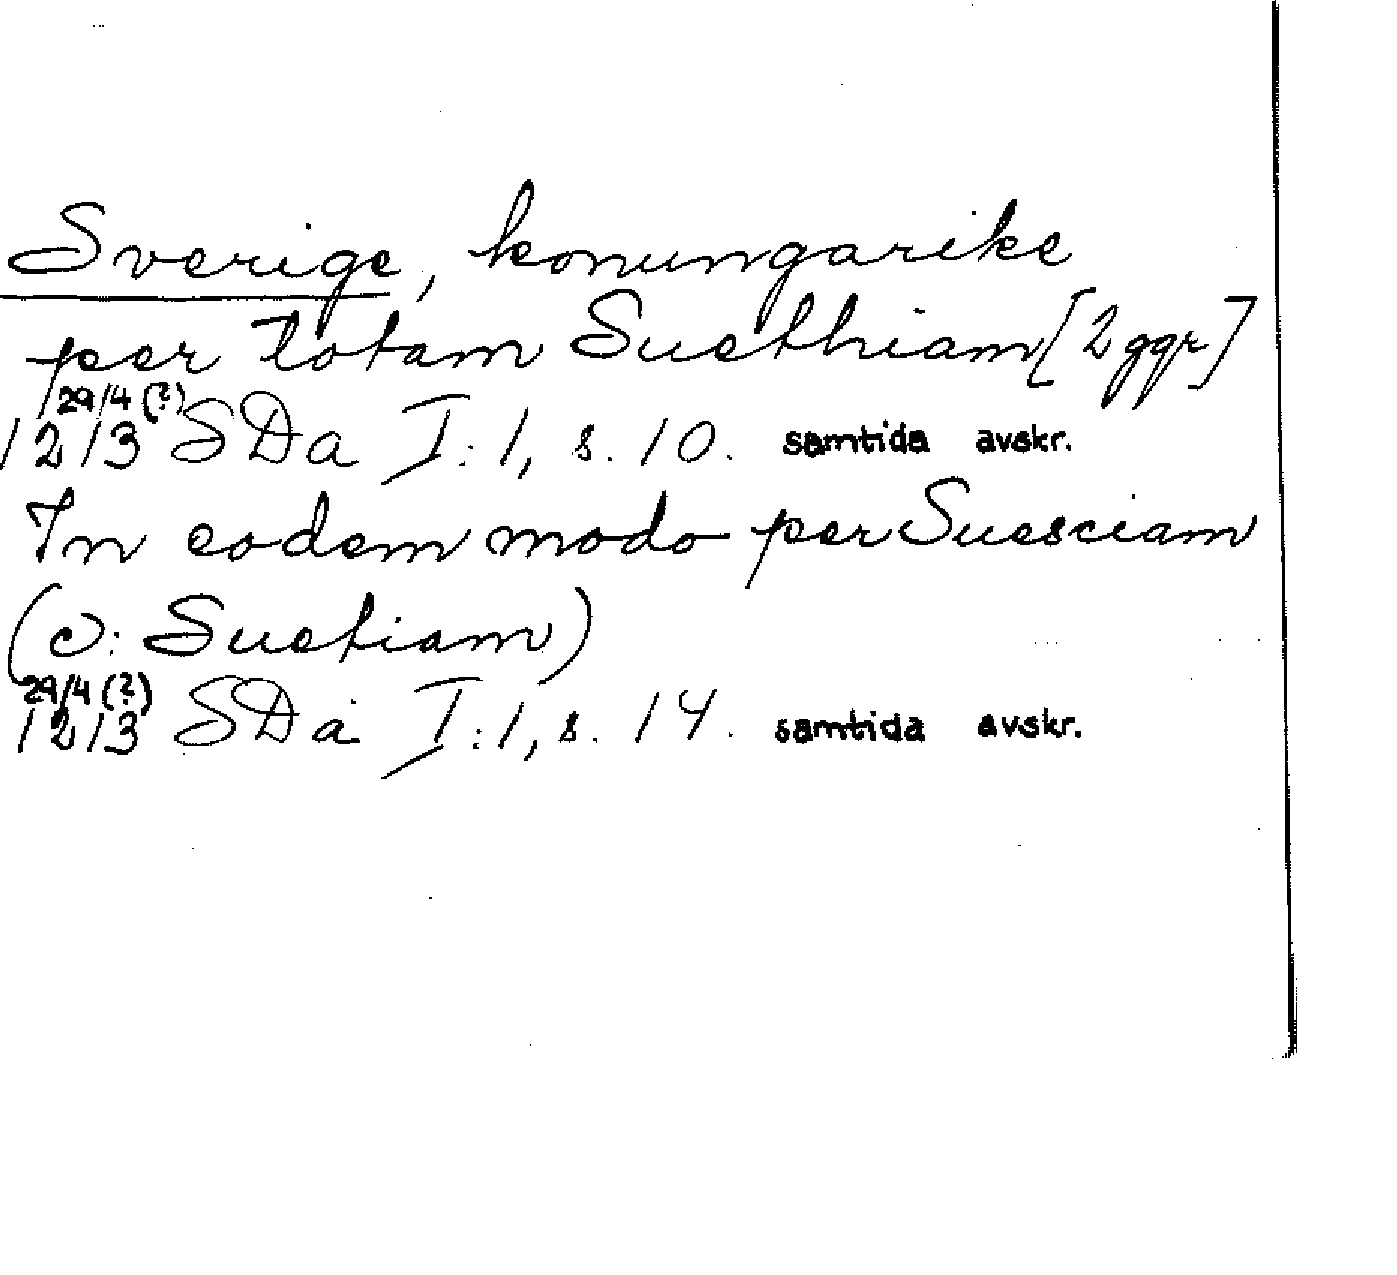 Sverige, konungarike
per totam Suethiam [2 ggr]
29/4 (?)
1213 SDa I:1, s. 10. samtida avskr.
In eodem modo per Suesciam
(ɔ: Suetiam)
29/4 (?)
1213 SDa I:1, s. 14. samtida avskr.